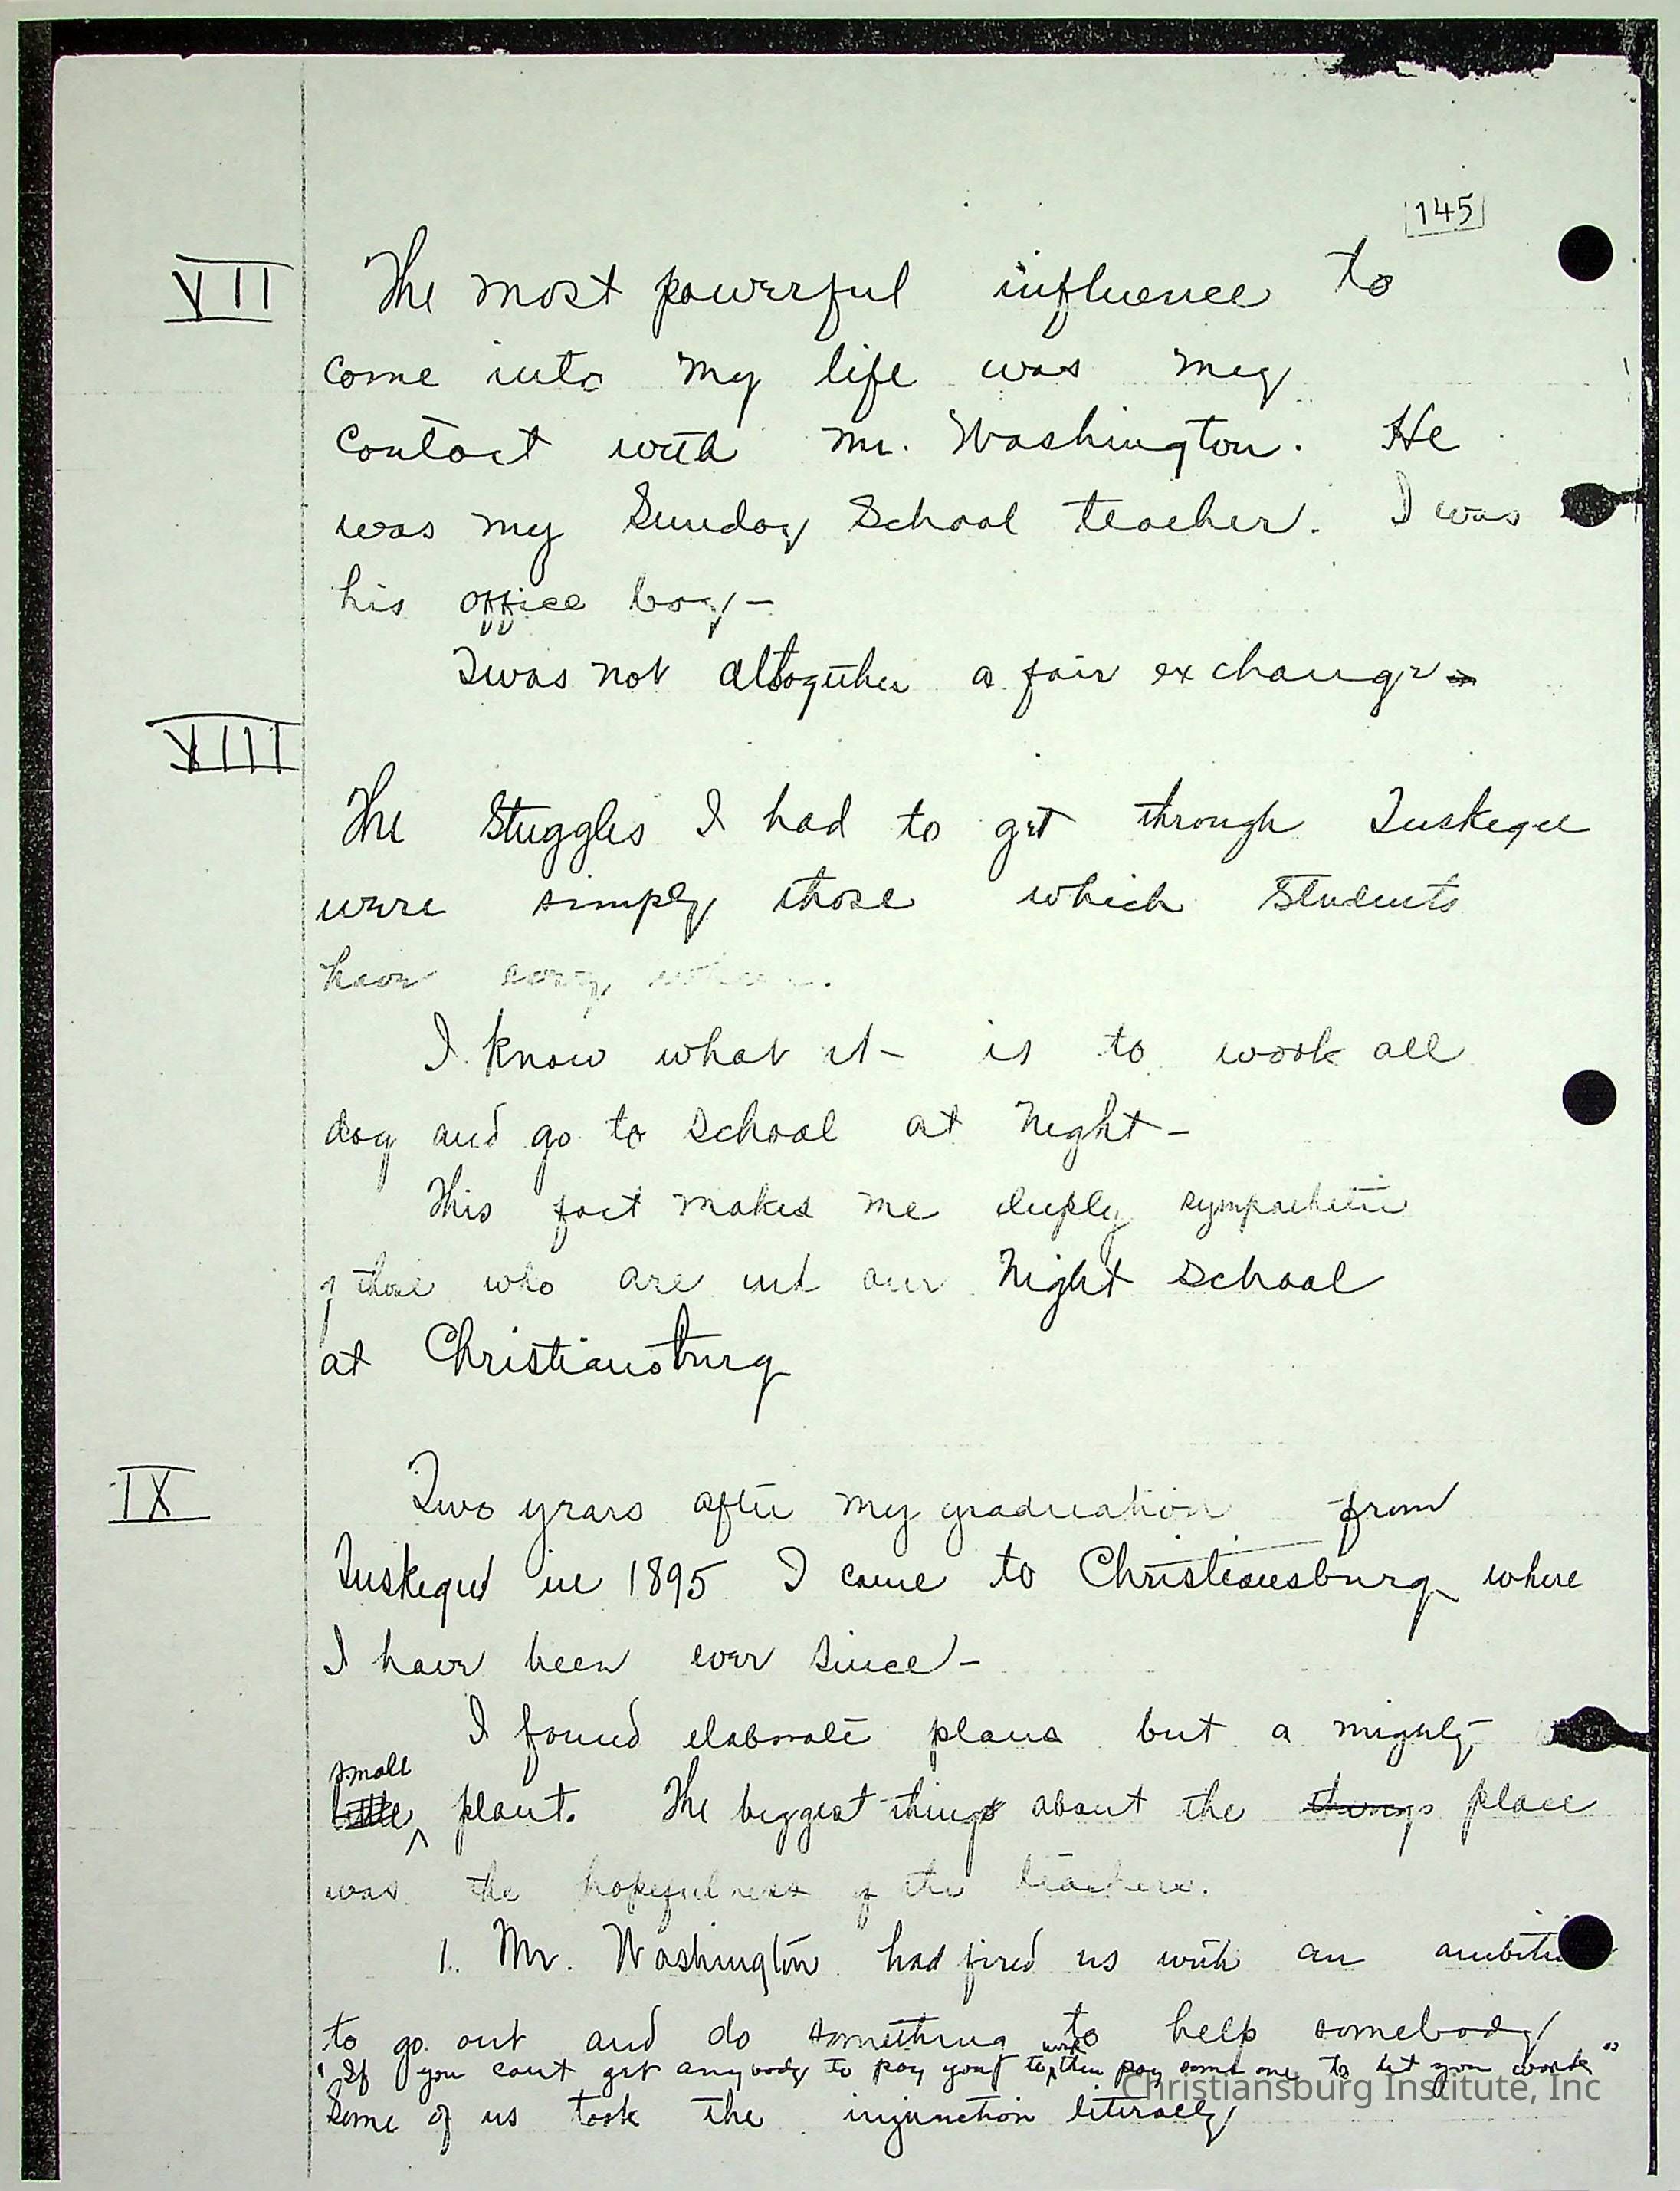 145
VII The most powerful influence to
come into my life was my
contact with Mr. Washington. He
was my Sunday School teacher. I was
his office boy—
Twas not altogether a fair exchange
VIII
The Stuggles I had to get through Tuskegee
were simply those which Students
have every where.
I know what it is to work all
day and go to school at Night—
This fact makes me deeply sympathetic
of those who are in our Night School
at Christiansburg
IX Two years after my graduation from
Tuskegee in 1895 I came to Christiansburg where
I have been ever since—
I found elaborate plans but a mighty
small
little plant. The biggest thing about the things place
was the hopefulness of the teachers.
1. Mr. Washington had fired us with an ambition
to go out and do something to help somebody
"If you cant get anybody to pay you to work then pay some one to let you work"
Some of us took the injunction literally
Christiansburg Institute, Inc